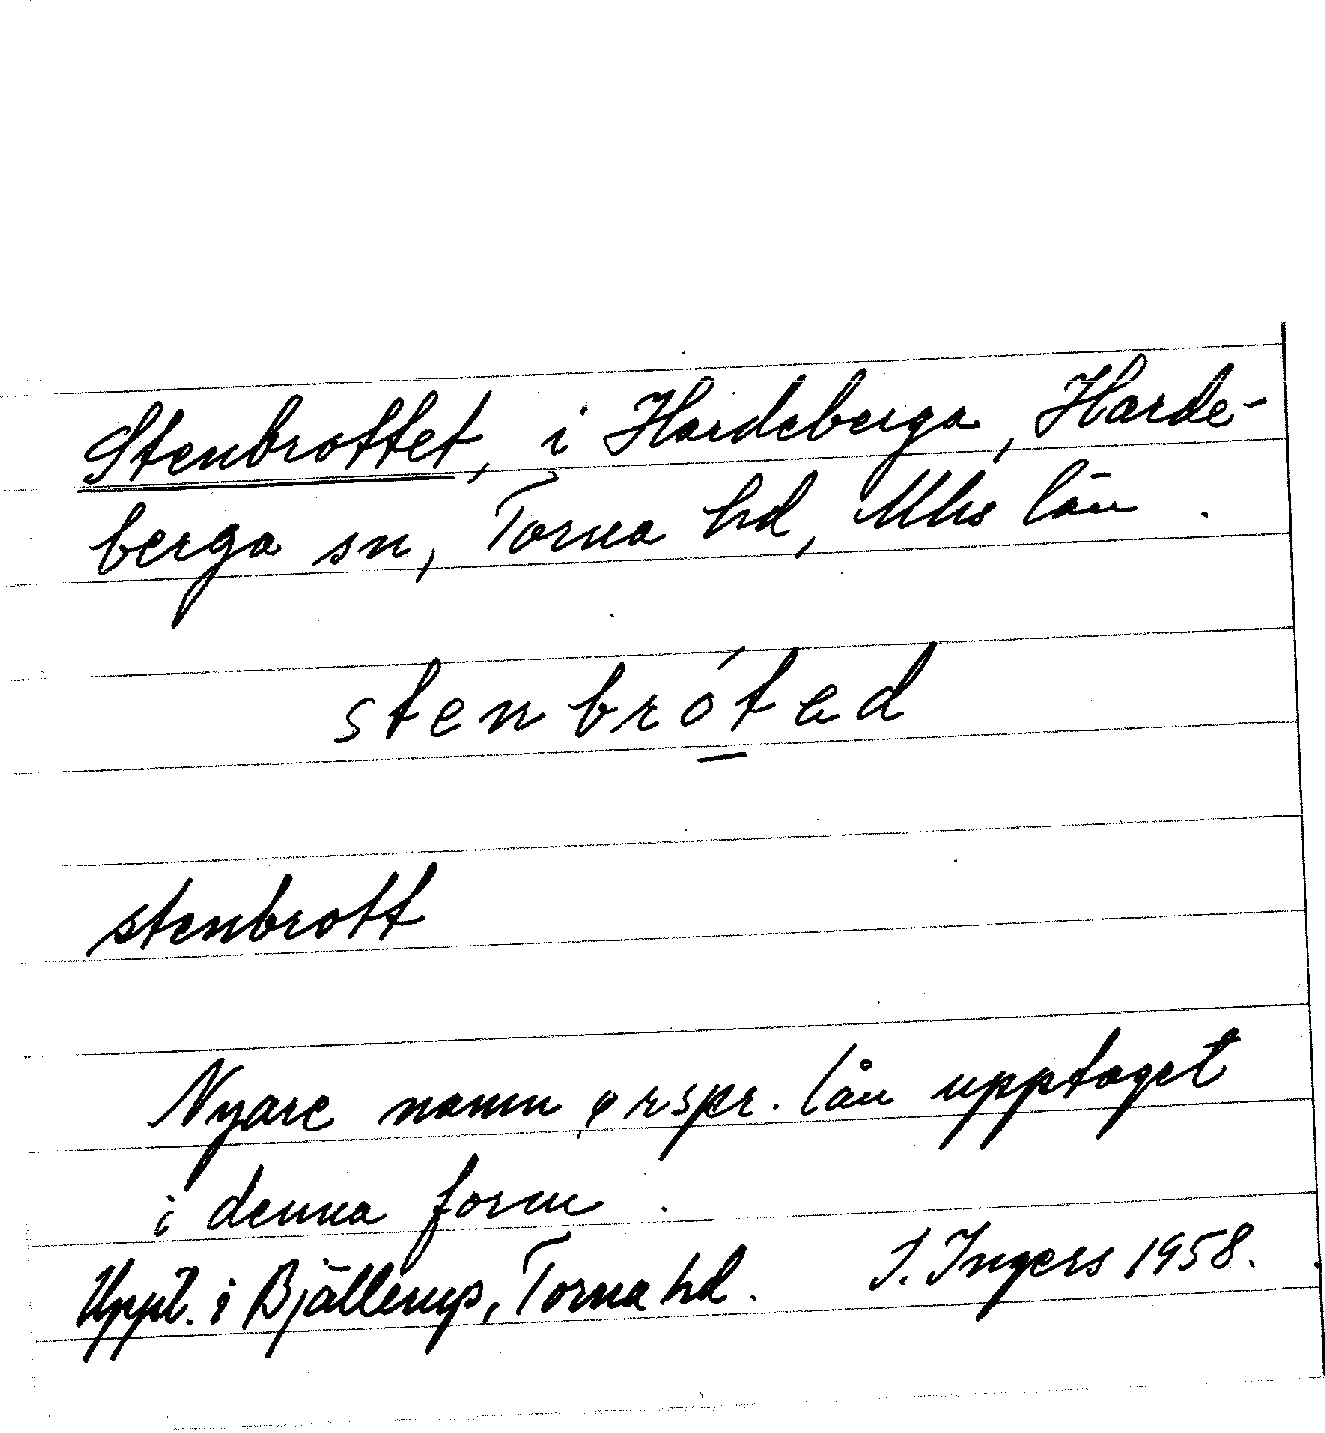 Stenbrottet, i Hardeberga, Harde-
berga sn, Torna hd, Mlhs län.
stenbrótəd
stenbrott
Nyare namn, rspr. lån upptaget
i denna form.
Uppt. i Bjällerup, Torna hd. I. Ingers 1958.